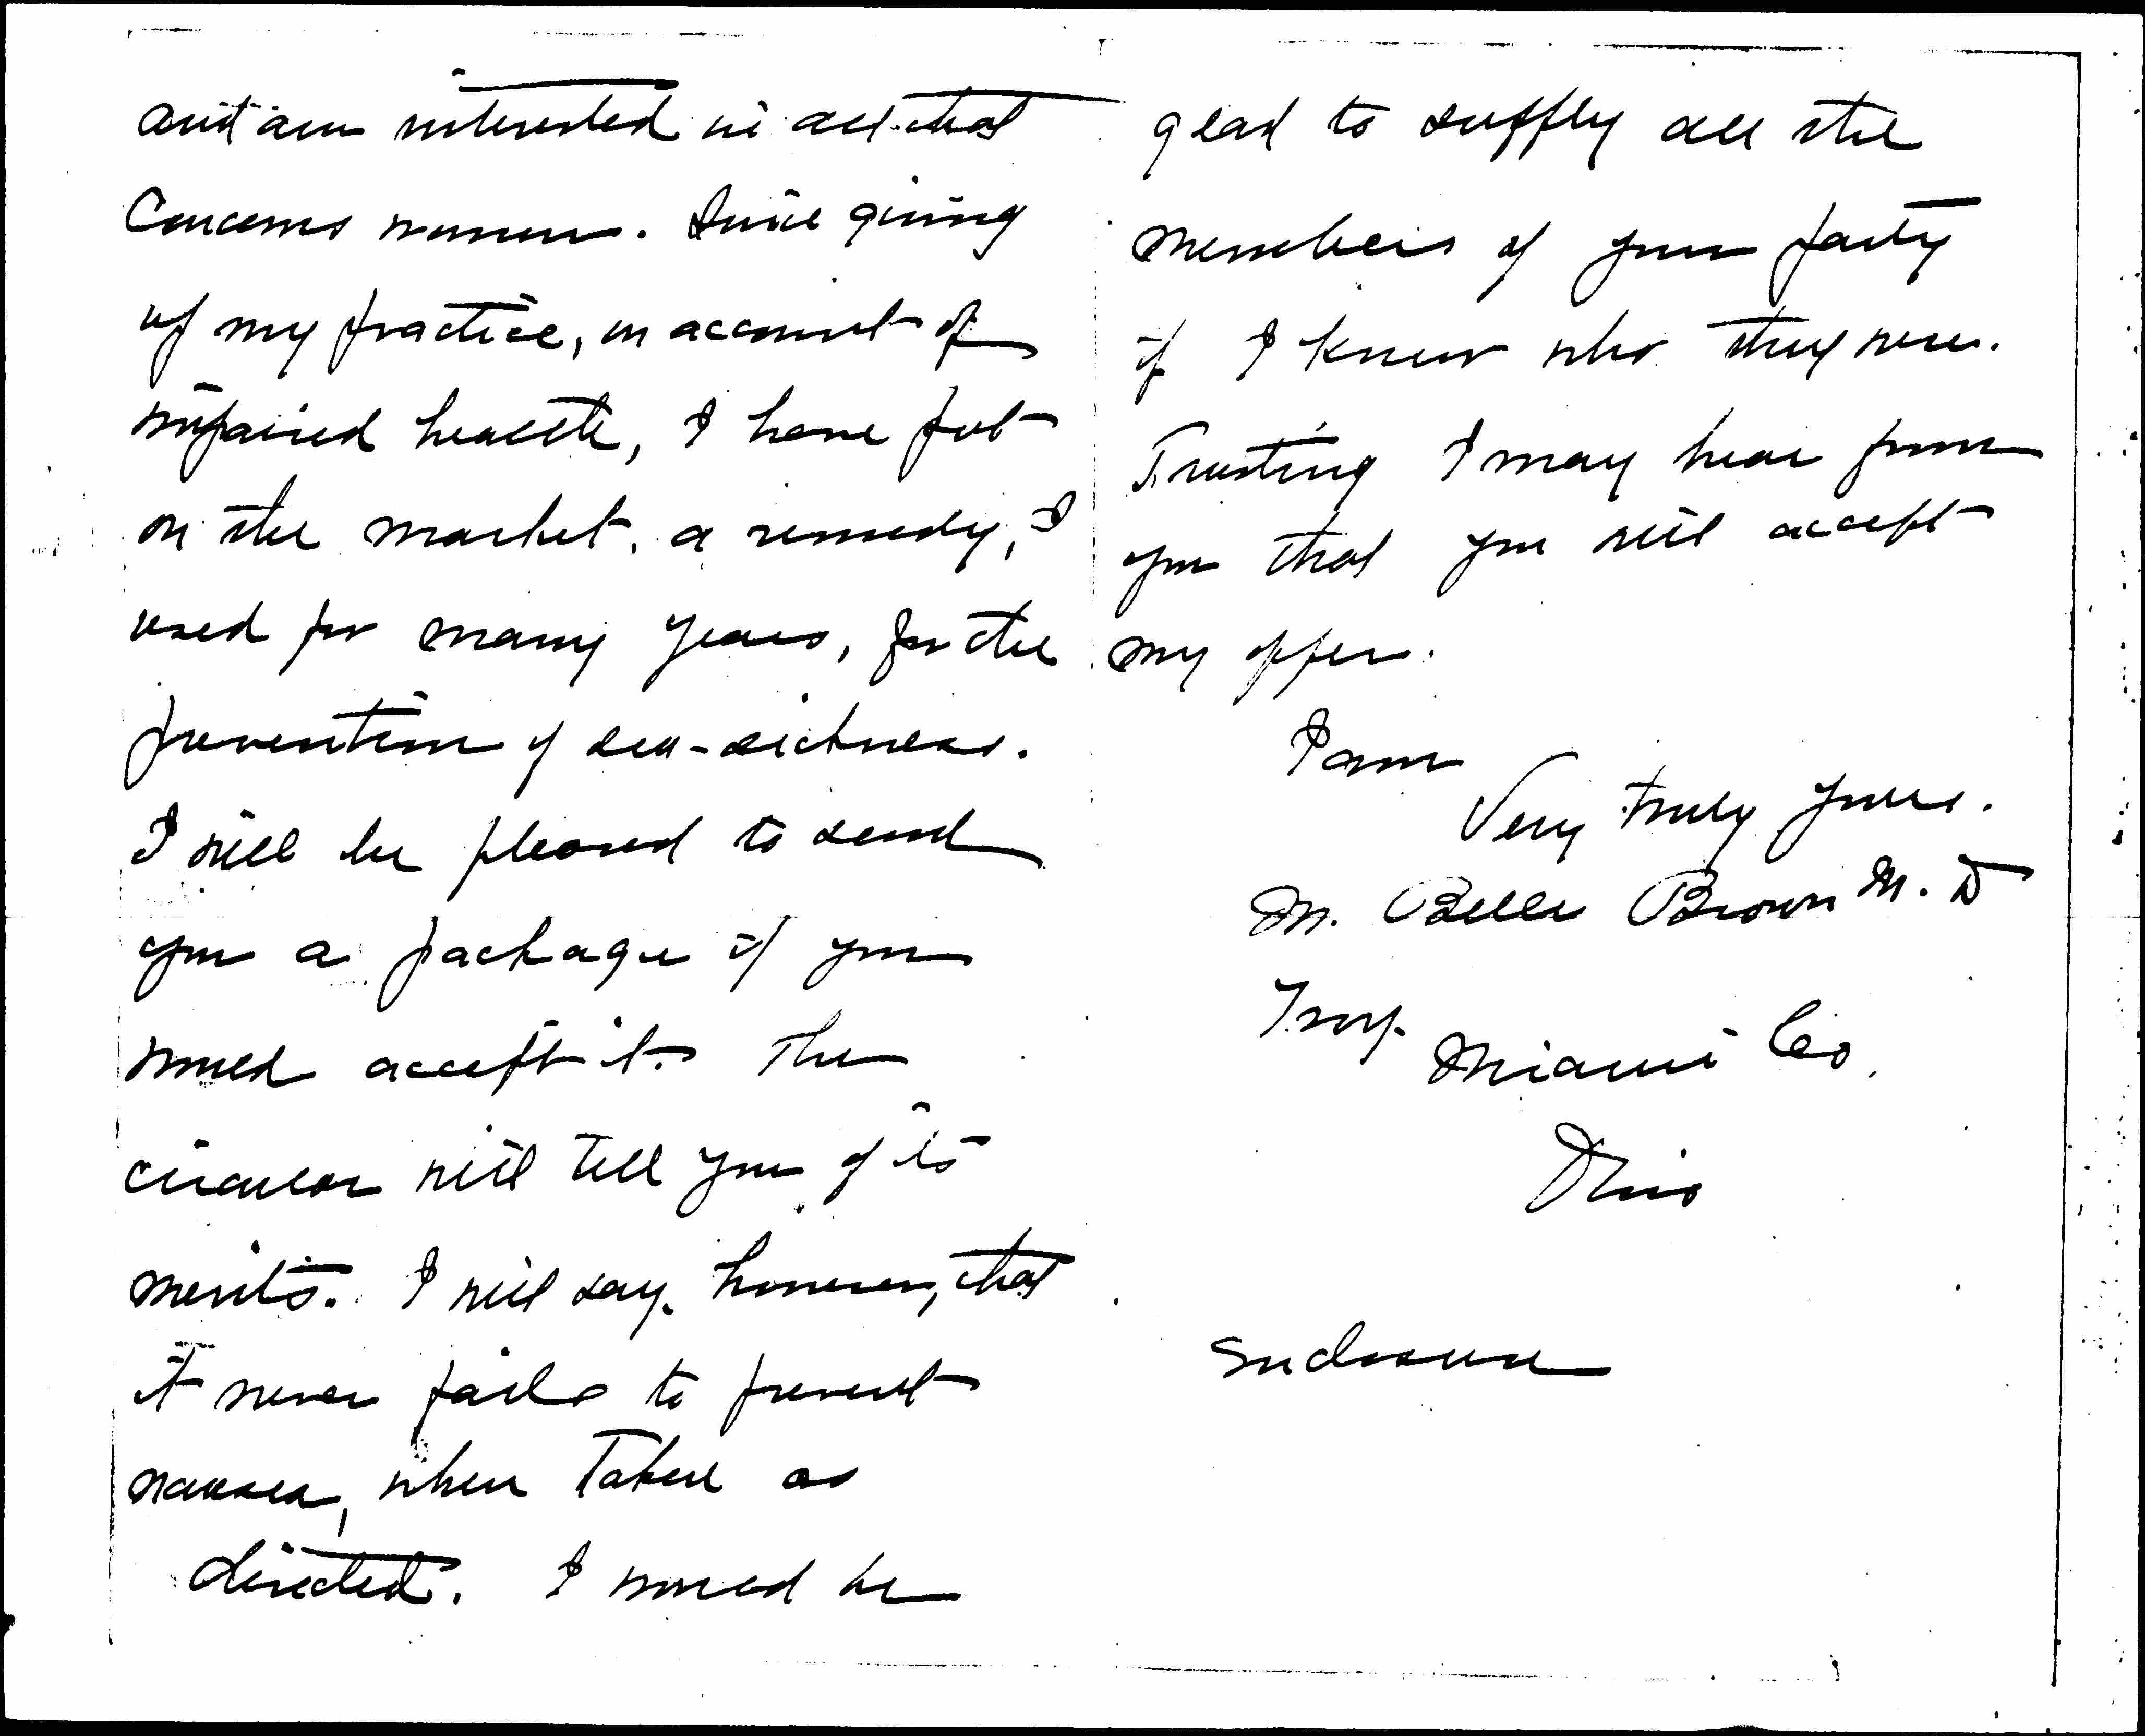 and am interested in all that
concerns women. Since giving
up my practice, on account of
impaired health, I have put
on the market, a remedy, I
used for many years, for the
prevention of sea-sickness.
I will be pleased to send
you a package if you
would accept it. The
circular will tell you of its
merits. I will say, however, that
it never fails to prevent
nausea, when taken as
directed. I would be
glad to supply all the
members of your party
if I knew who they were.
Trusting I may hear from
you that you will accept
my offer.
I am
Very truly yours.
M. Belle Brown M.D
Troy.
Miami Co.
Ohio
Enclosure